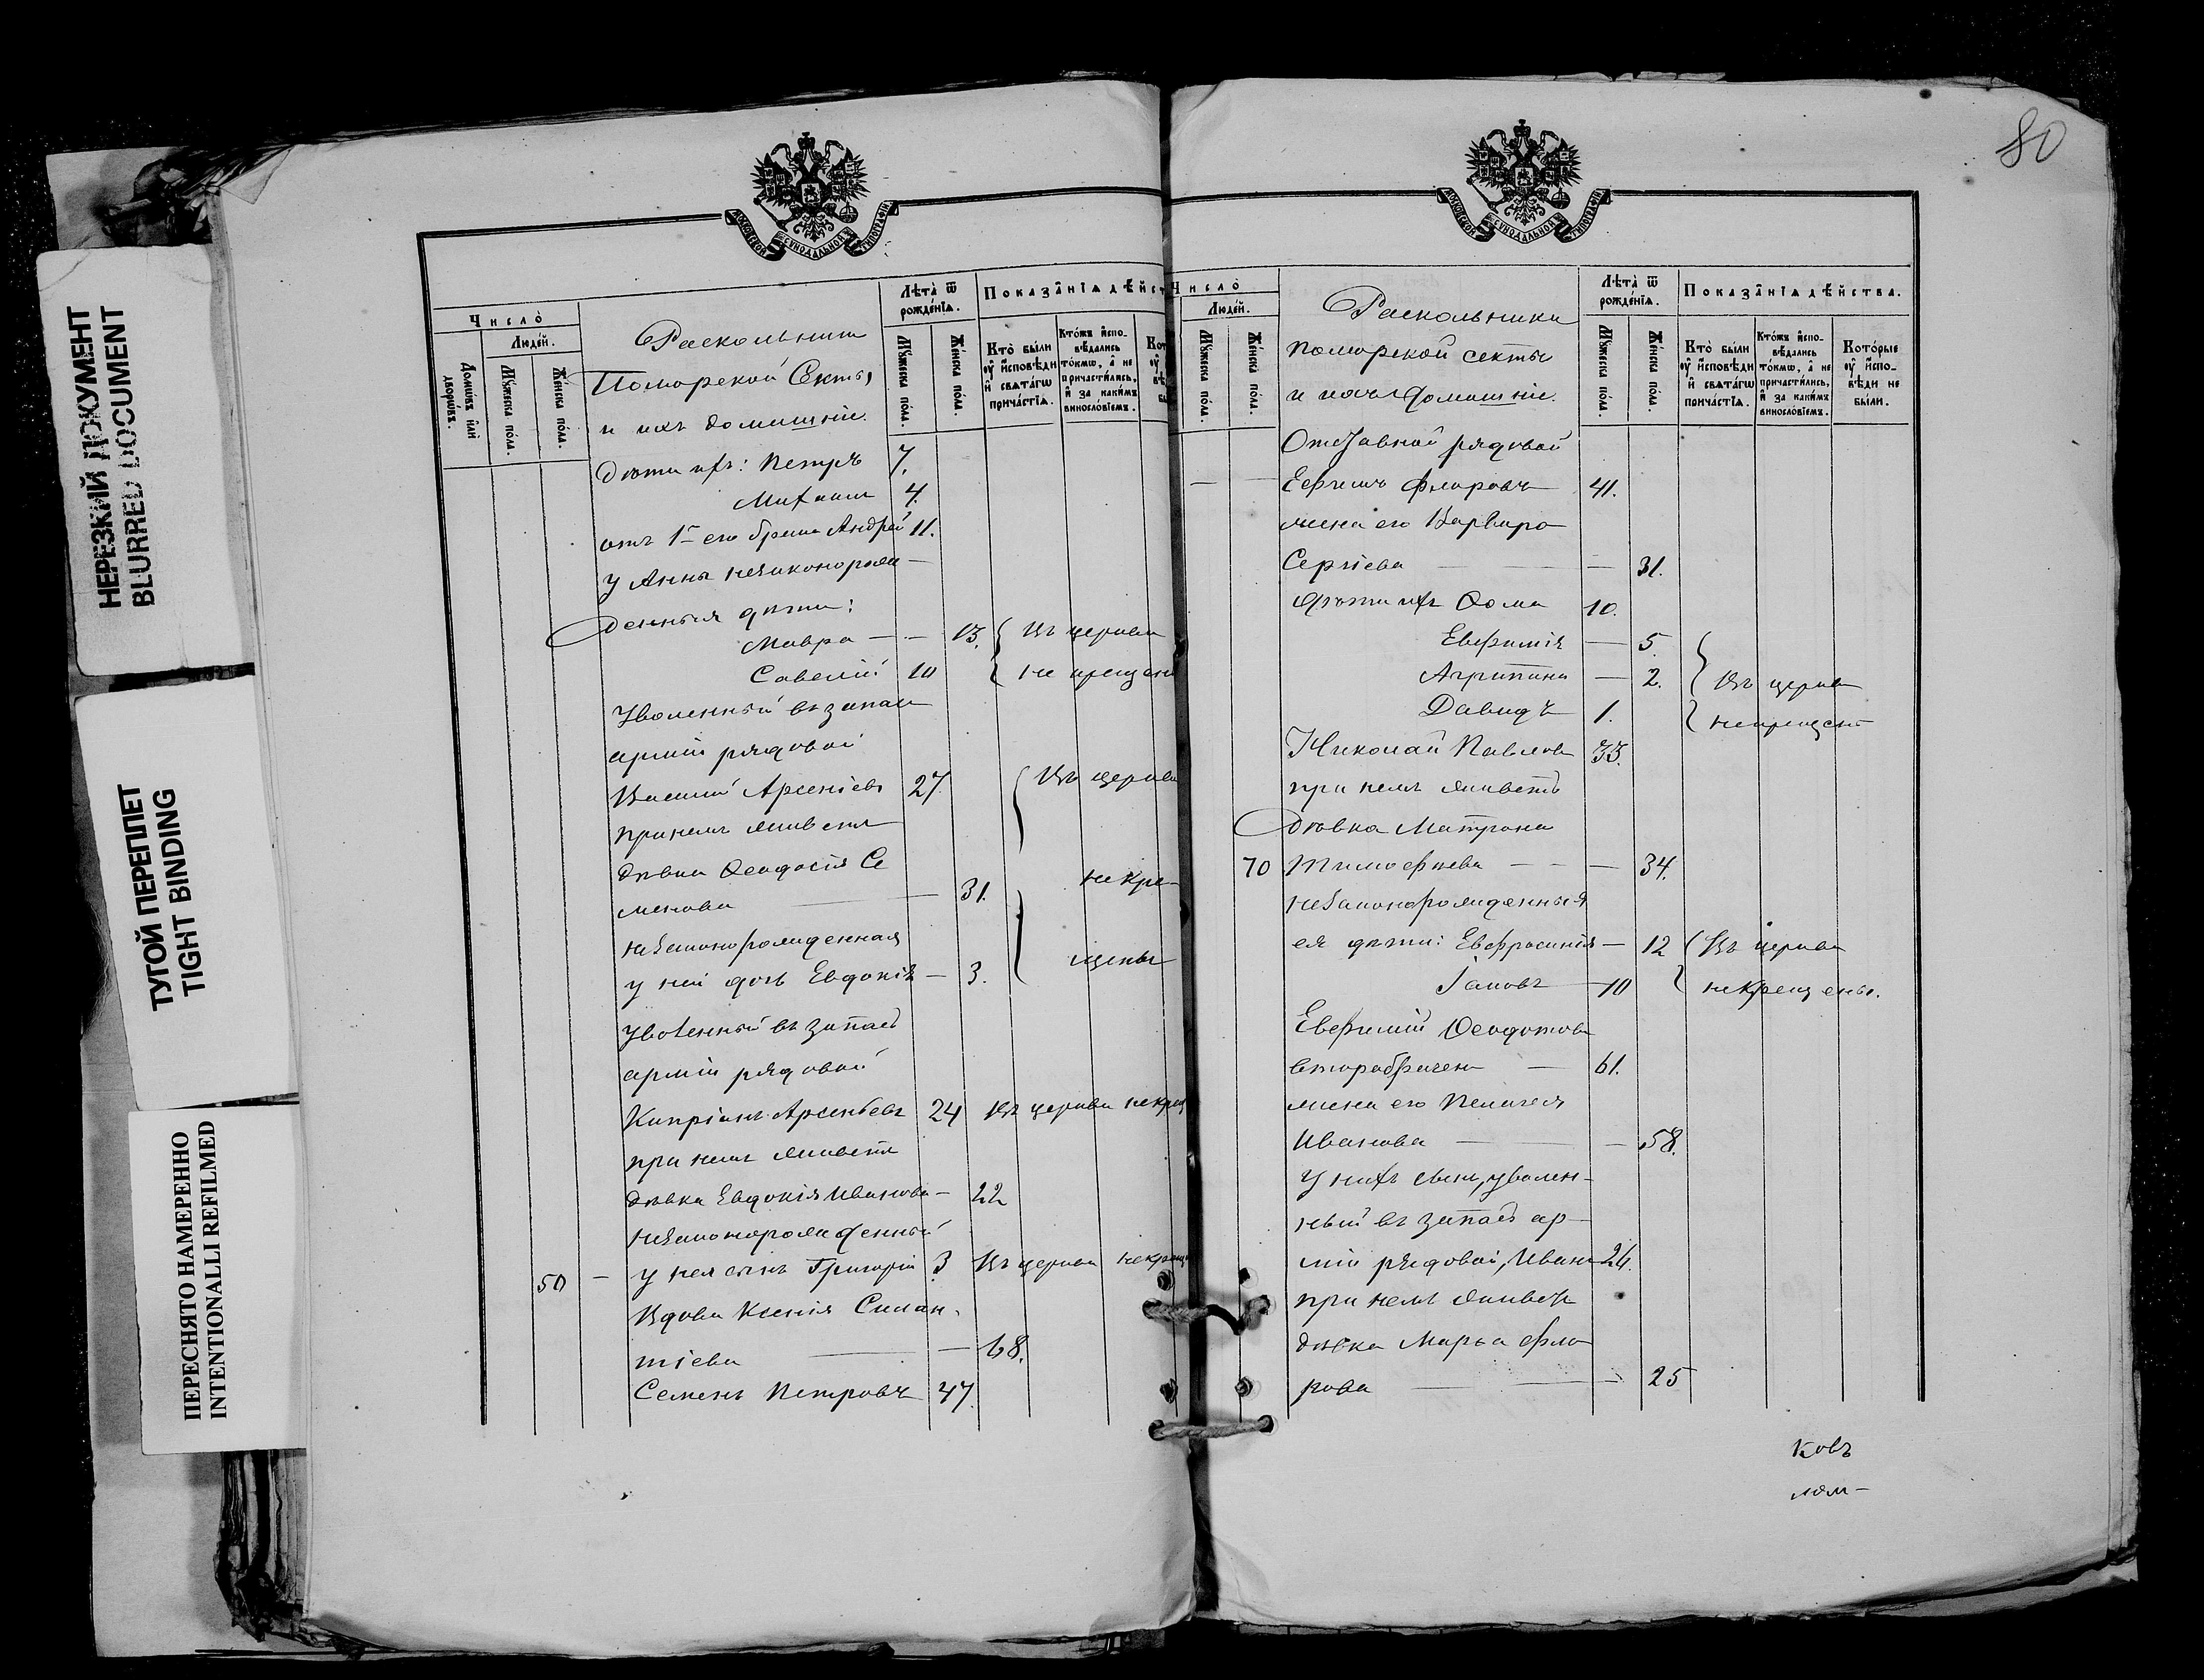 80
НЕРЕЗКИЙ ДОКУМЕНТ
BLURRED DOCUMENT
ТУГОЙ ПЕРЕПЛЕТ
TIGHT BINDING
ПЕРЕСНЯТО НАМЕРЕННО
INTENTIONALLI REFILMED
МОСКОВСКОЙ СѴНОДАЛЬНОЙ ТИПОГРАФІИ
Число̀
Людей.
Домѡвъ и҆лѝ дворѡвъ.
Мꙋжеска пола.
Женска пола.
Раскольники
Поморской Секты
и ихъ домашніе.
Лѣта̀ ѿ рожде́нїѧ.
Мꙋжеска по́ла.
Же́нска по́ла.
Показа̑нїѧ дѣ́йст
Кто̀ бы́ли ᲂу҆ и҆сповѣди и҆ свѧта́гѡ прича́стїѧ.
Кто́жъ и҆спо-вѣдались то́кмѡ, а҆ не причасти́лись, и҆ за каки́мъ винослóвїемъ.
дѣти ихъ: Петръ 7.
Михаилъ 4.
отъ 1го его брака Андрей 11.
у Анны незаконорож—
денныя дѣти:
Мавра — — 13. Въ церкви
Савелій 10 не крещены
Уволенный въ запас
арміи рядовой
Василій Арсеніевъ 27. Въ церкви
при немъ живетъ
дѣвка Ѳеодосія Се
менова — — 31. некре—
незаконорожденная
у ней дочь Евдокія — 3. щены
Уволенный въ запасъ
арміи рядовой
Кипріанъ Арсеньевъ 24 Въ церкви некрещ
при немъ живетъ
дѣвка Евдокія Иванова — 22
незаконорожденный
50 — у нея сынъ Григорій 3 Въ церкви некрещ
Вдова Ксенія Силан-
тіева — — 68.
Семенъ Петровъ 47.
МОСКОВСКОЙ СѴНОДАЛЬНОЙ ТИПОГРАФІИ
Число̀
Людей.
Мꙋжеска пола.
Женска пола.
Раскольники
поморской секты
и ихъ домашніе.
Лѣта̀ ѿ рожде́нїѧ.
Мꙋжеска по́ла.
Же́нска по́ла.
Показа̑нїѧ дѣ́йства.
Кто̀ бы́ли ᲂу҆ и҆сповѣди и҆ свѧта́гѡ прича́стїѧ.
Кто́жъ и҆спо-вѣдались то́кмѡ, а҆ не причасти́лись, и҆ за каки́мъ винослóвїемъ.
Кото́рые ᲂу҆ и҆спо-вѣди не бы́ли.
Отставной рядовой
— — Ефимъ Флоровъ 41.
жена его Варвара
Сергіева — — — 31.
Дѣти ихъ Ѳома 10.
Евфимія — 5.
Агрипина — 2. Въ церкви
Давидъ 1. некрещены
Николай Павловъ 33.
при немъ живетъ
дѣвка Матрона
70 Тимофеева — — — 34.
незаконорожденныя
ея дѣти: Евфросинія — 12 Въ церкви
Іаковъ — 10 некрещены.
Евфимій Ѳеодотовъ
второбраченъ — 61.
жена его Пелагея
Иванова — — — 58.
У нихъ сынъ, уволен-
ный въ запасъ ар—
міи рядовой, Иванъ 26.
при немъ живетъ
дѣвка Марья Фло
рова — — — 25
ковъ